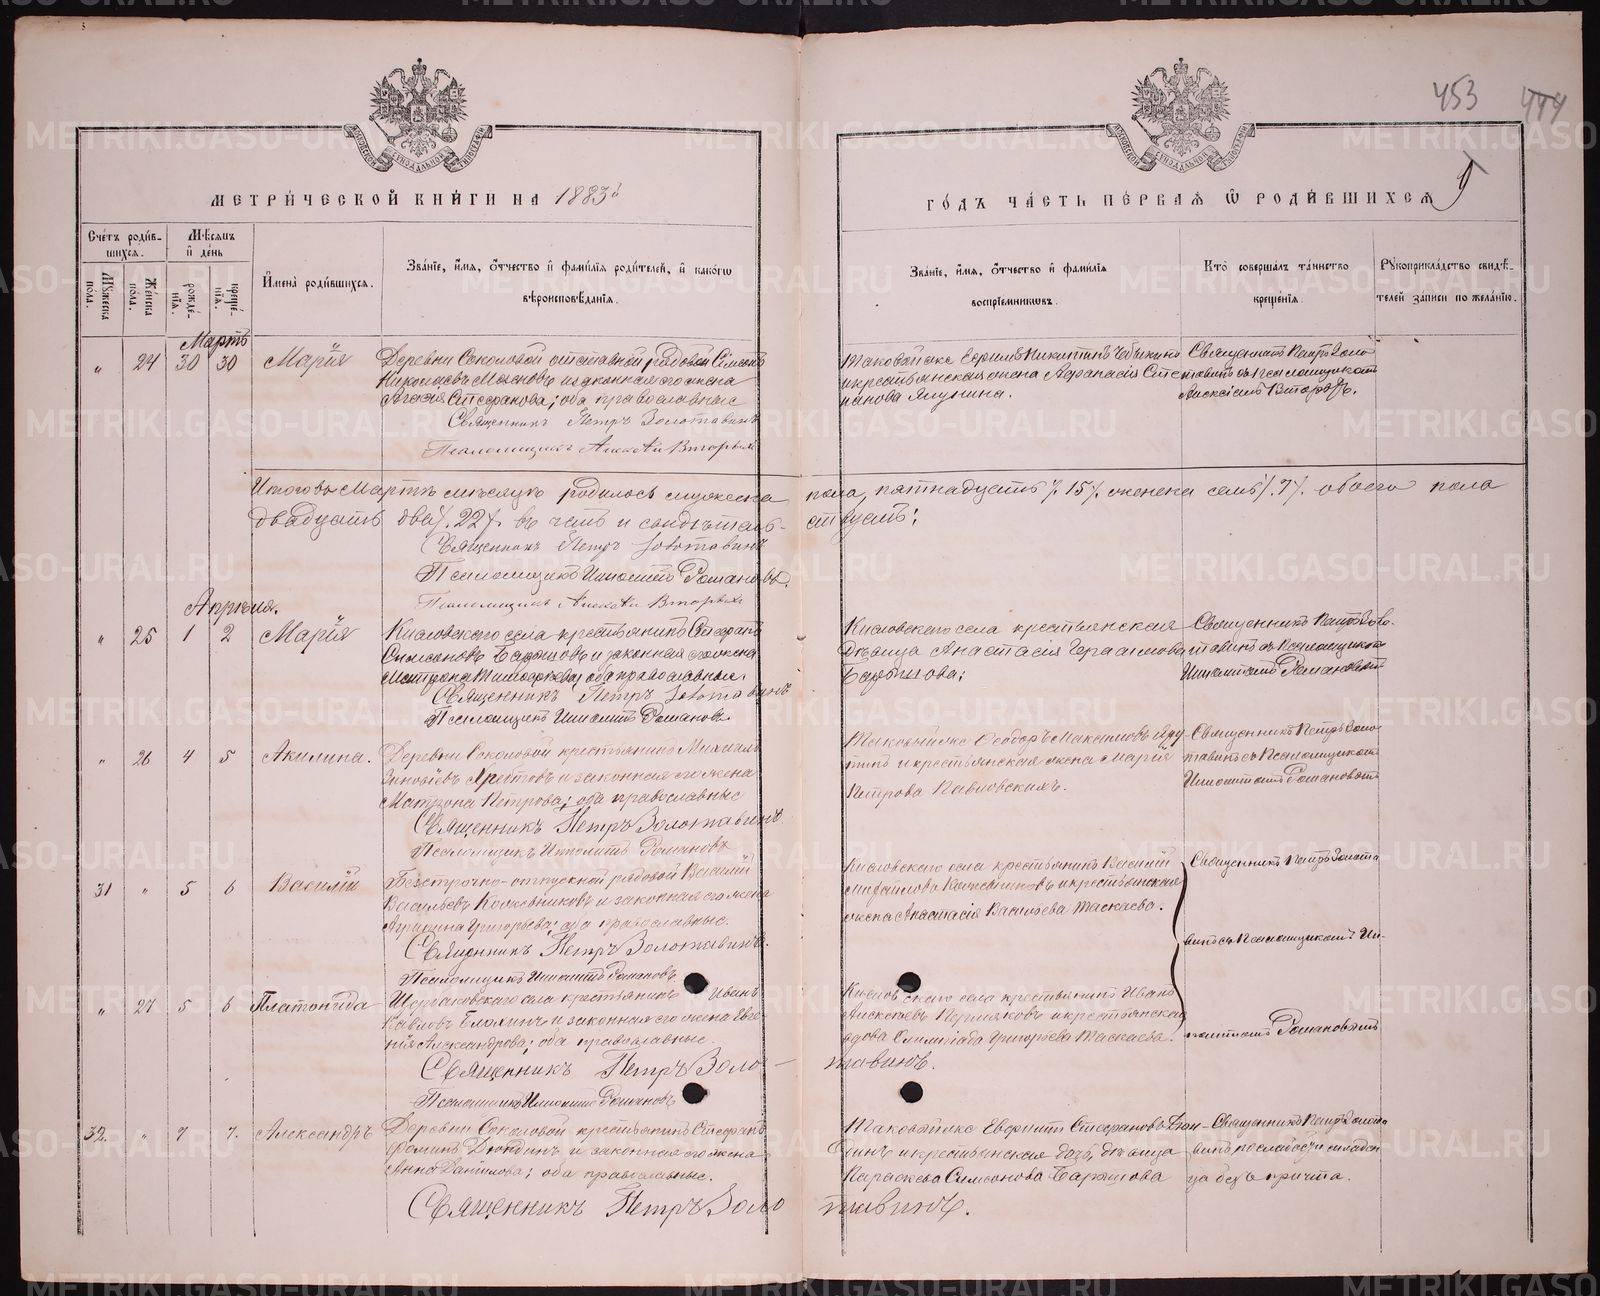 453
444
МЕТРИЧЕСКОЙ КНИГИ НА 1883й
ГОДЪ ЧАСТЬ ПЕРВАЯ Ѿ РОДИВШИХСЯ
Счетъ родившихся.
Мѣсяцъ и день
Мужеска пола.
Женска пола.
рожденія.
крещенія.
Имена родившихся.
Званіе, имя, отчество и фамилія родителей, и какогѡ вѣроисповѣданія.
Званіе, имя, отчество и фамилія воспріемниковъ.
Кто совершалъ таинство крещенія.
Рукоприкладство свидѣтелей записи по желанію.
Мартъ
„ 24 30 30 Марія
Деревни Соколовой отставной рядовой Симеонъ
Николаевъ и законная его жена
Стефанова; оба православные
Священникъ Петръ Золотавинъ
Псаломщикъ Алексѣй Вторыхъ
Таковойже Никитинъ
и крестьянская жена Афанасія Сте
панова Якунина.
Священникъ Петръ Золо
тавинъ съ псаломщикомъ
Алексіемъ Вторыхъ.
Итого въ Мартѣ мѣсяцѣ родилось мужеска пола, пятнадцать /. 15 /. женска семь /. 7 /. обоего пола
двадцать два /. 22 /. въ чемъ и свидѣтельствуемъ:
Священникъ Петръ Золотавинъ
Псаломщикъ Ипполитъ Романовъ.
Псаломщикъ Алексѣй Вторыхъ
Апрѣля.
„ 25 1 2 Марія
Кисловского села крестьянинъ Стефанъ
Симеоновъ и законная его жена
Матрона Тимофеева; оба православные.
Священникъ Петръ Золотавинъ
Псаломщикъ Ипполитъ Романовъ
Кисловского села крестьянская
дѣвица Анастасія Герасимова
Священникъ Петръ Золо-
тавинъ съ Псаломщикомъ
Ипполитомъ Романовымъ
„ 26 4 5 Акилина.
Деревни Соколовой крестьянинъ Михаилъ
Зиновіевъ и законная его жена
Матрона Петрова; оба православные
Священникъ Петръ Золотавинъ
Псаломщикъ Ипполитъ Романовъ
Таковойже Ѳеодоръ Максимовъ
и крестьянская жена Марія
Петрова Павловскихъ.
Священникъ Петръ Золо
тавинъ съ Псаломщикомъ
Ипполитомъ Романовымъ
31 „ 5 6 Василій
Безсрочно-отпускной рядовой Василій
Васильевъ Кожевниковъ и законная его жена
Григорьева; оба православные.
Священникъ Петръ Золотавинъ.
Псаломщикъ Ипполитъ Романовъ
Кисловского села крестьянинъ Василій
Михайловъ Кожевниковъ и крестьянская
жена Анастасія Васильева Таскаева.
Священникъ Петръ Золота
винъ съ Псаломщикомъ Ип-
политомъ Романовымъ
„ 27 5 6 Платонида
села крестьянинъ Иванъ
Павловъ и законная его жена Евге
нія Александрова; оба православные.
Священникъ Петръ Золо-
тавинъ.
Псаломщикъ Ипполитъ Романовъ
Кисловского села крестьянинъ Иванъ
Алексѣевъ Пермяковъ и крестьянская
вдова Олимпіада Григорьева Таскаева.
32. „ 7 7. Александръ
Деревни Соколовой крестьянинъ Стефанъ
Ѳоминъ Дюндинъ и законная его жена
Анна Данилова; оба православные.
Священникъ Петръ Золо
тавинъ.
Таковойже Евфимій Стефановъ Дюн-
динъ и крестьянская дочь, дѣвица
Параскева Симеонова
Священникъ Петръ Золота
винъ по слабости младен
ца безъ причта.